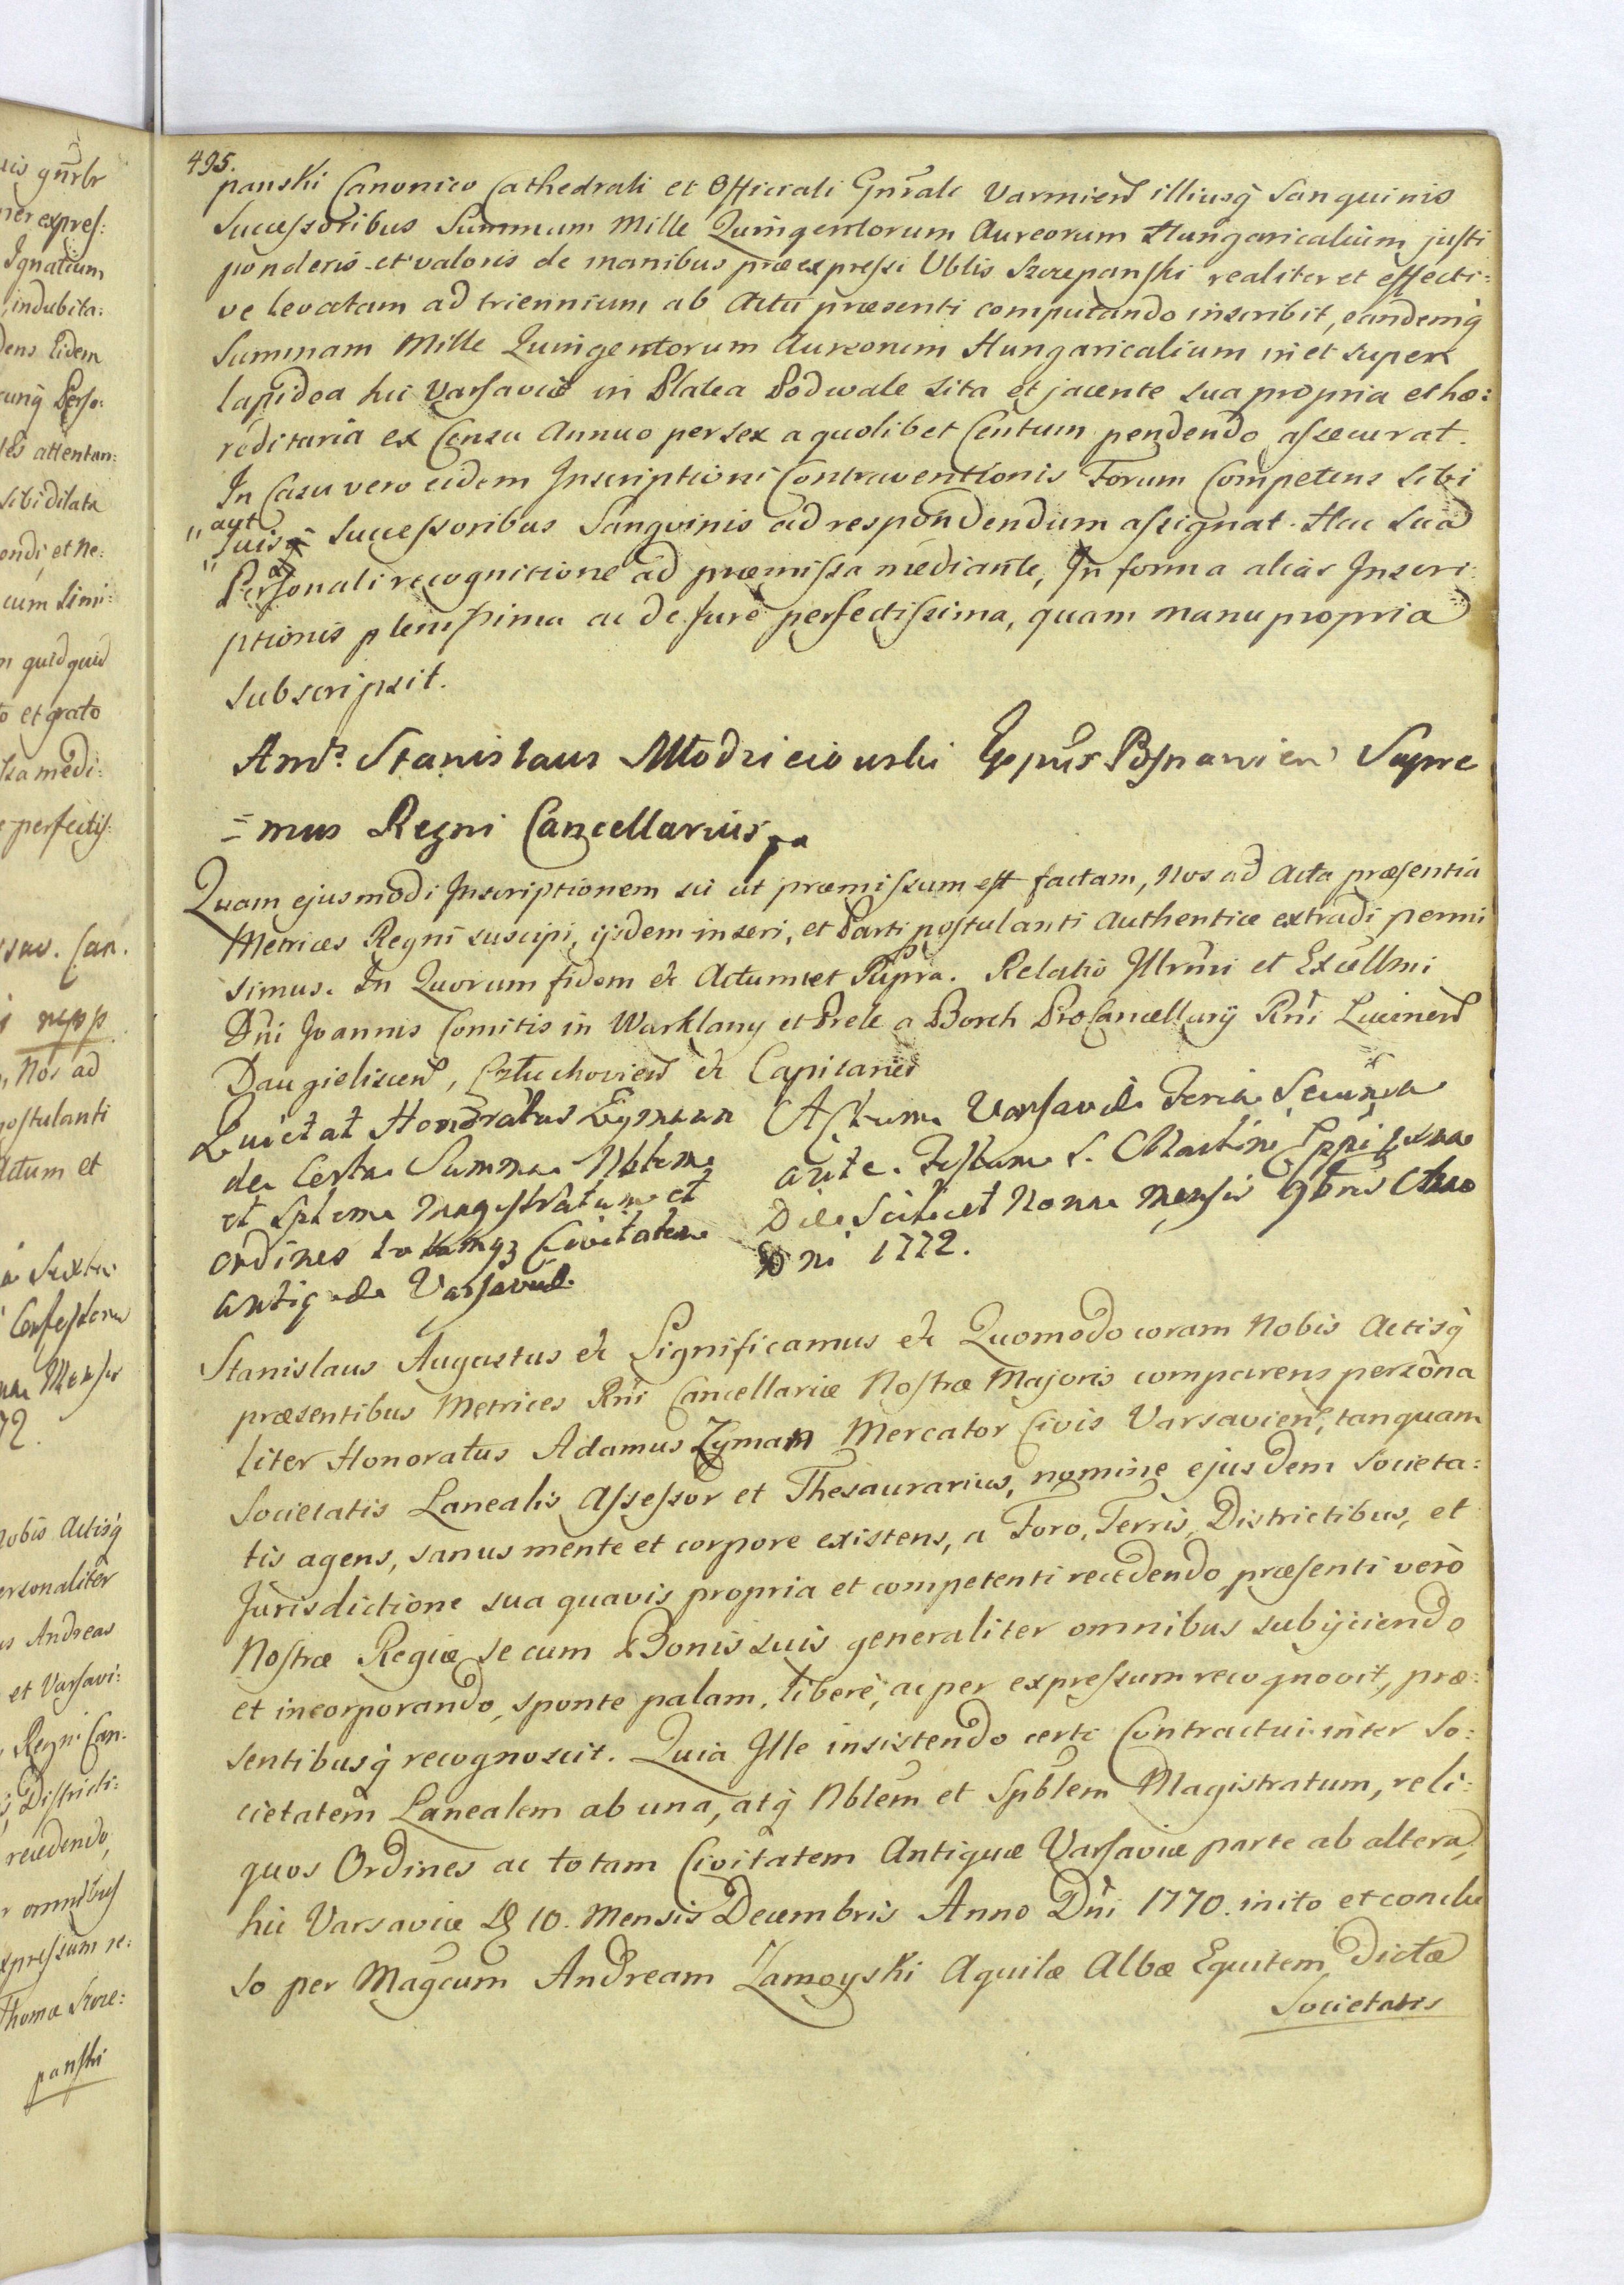 495.
panski Canonico Cathedrali et Officiali Gnrali Varmien illiusq̀ Sanguinis
Successoribus Summam Mille Quingentorum Aureorum Hungaricalium justi
ponderis et valoris de manibus præexpressi Vblis Szczepanski realiter et effecti:
ve levatam ad triennium ab Actu præsenti computando inscribit, eandemq̀
Summam Mille Quingentorum Aureorum Hungaricalium in et super
lapidea hic Varsaviæ in Platea Podwale sita et jacente sua propria et hæ:
reditaria ex Censu Annuo per sex a quolibet Centum pendendo assecurat.
In Casu vero eidem Inscriptioni Contraventionis Forum Competens sibi
aut
suisq̀ Successoribus Sangvinis ad respondendum assignat. Hac sua
Personali recognitione ad præmissa mediante, In forma alias Inscri:
ptionis plenissima ac de Jure perfectissima, quam manu propria
subscripsit.
Andr. Stanislaus Młodzieiowski Eppus Posnanien Supre
=mus Regni Cancellarius
Quam ejusmodi Inscriptionem sic ut præmissum est factam, Nos ad Acta præsentia
Metrices Regni suscipi, ijsdem inseri, et Parti postulanti Authentice extradi permi
simus. In Quorum fidem &c Actum ut Supra. Relatio Illrmi et Excellmi
Dni Joannis Comitis in Warklany et Prele a Borch ProCancellarij Rni Lucinen
Daugieliscen, Człuchovien &c Capitanei
Quietat Honoratus Zyman
de Certa Summa Nblem
et Spblem Magistratum et
Ordines totamqȝ Civitatem
antiquæ Varsaviæ
Actum Varsaviæ Feria Secunda
ante Festum S. Martini Eppi
Die Scilicet Nona Mensis 9bris Ano
Dni 1772.
Stanislaus Augustus &c Significamus &c Quomodo coram Nobis Actisq̀
præsentibus Metrices Rni Cancellariæ Nostræ Majoris comparens persona
liter Honoratus Adamus Zyman Mercator Civis Varsavien, tanquam
Societatis Lanealis Assessor et Thesaurarius, nomine ejusdem Societa:
tis agens, sanus mente et corpore existens, a Foro, Terris, Districtibus, et
Jurisdictione sua quavis propria et competenti recedendo præsenti verò
Nostræ Regiæ se cum Bonis suis generaliter omnibus subijciendo
et incorporando, sponte palam, liberè, ac per expressum recognovit, præ:
sentibusq̀ recognoscit. Quia Ille insistendo certi Contractui inter So:
cietatem Lanealem ab una, atq̀ Nblem et Spblem Magistratum, reli:
quos Ordines ac totam Civitatem Antiquæ Varsaviæ parte ab altera,
hic Varsaviæ D 10. Mensis Decembris Anno Dni 1770. inito et conclu
so per Magcum Andream Zamoyski Aquilæ Albæ Equitem, Dictæ
Societatis